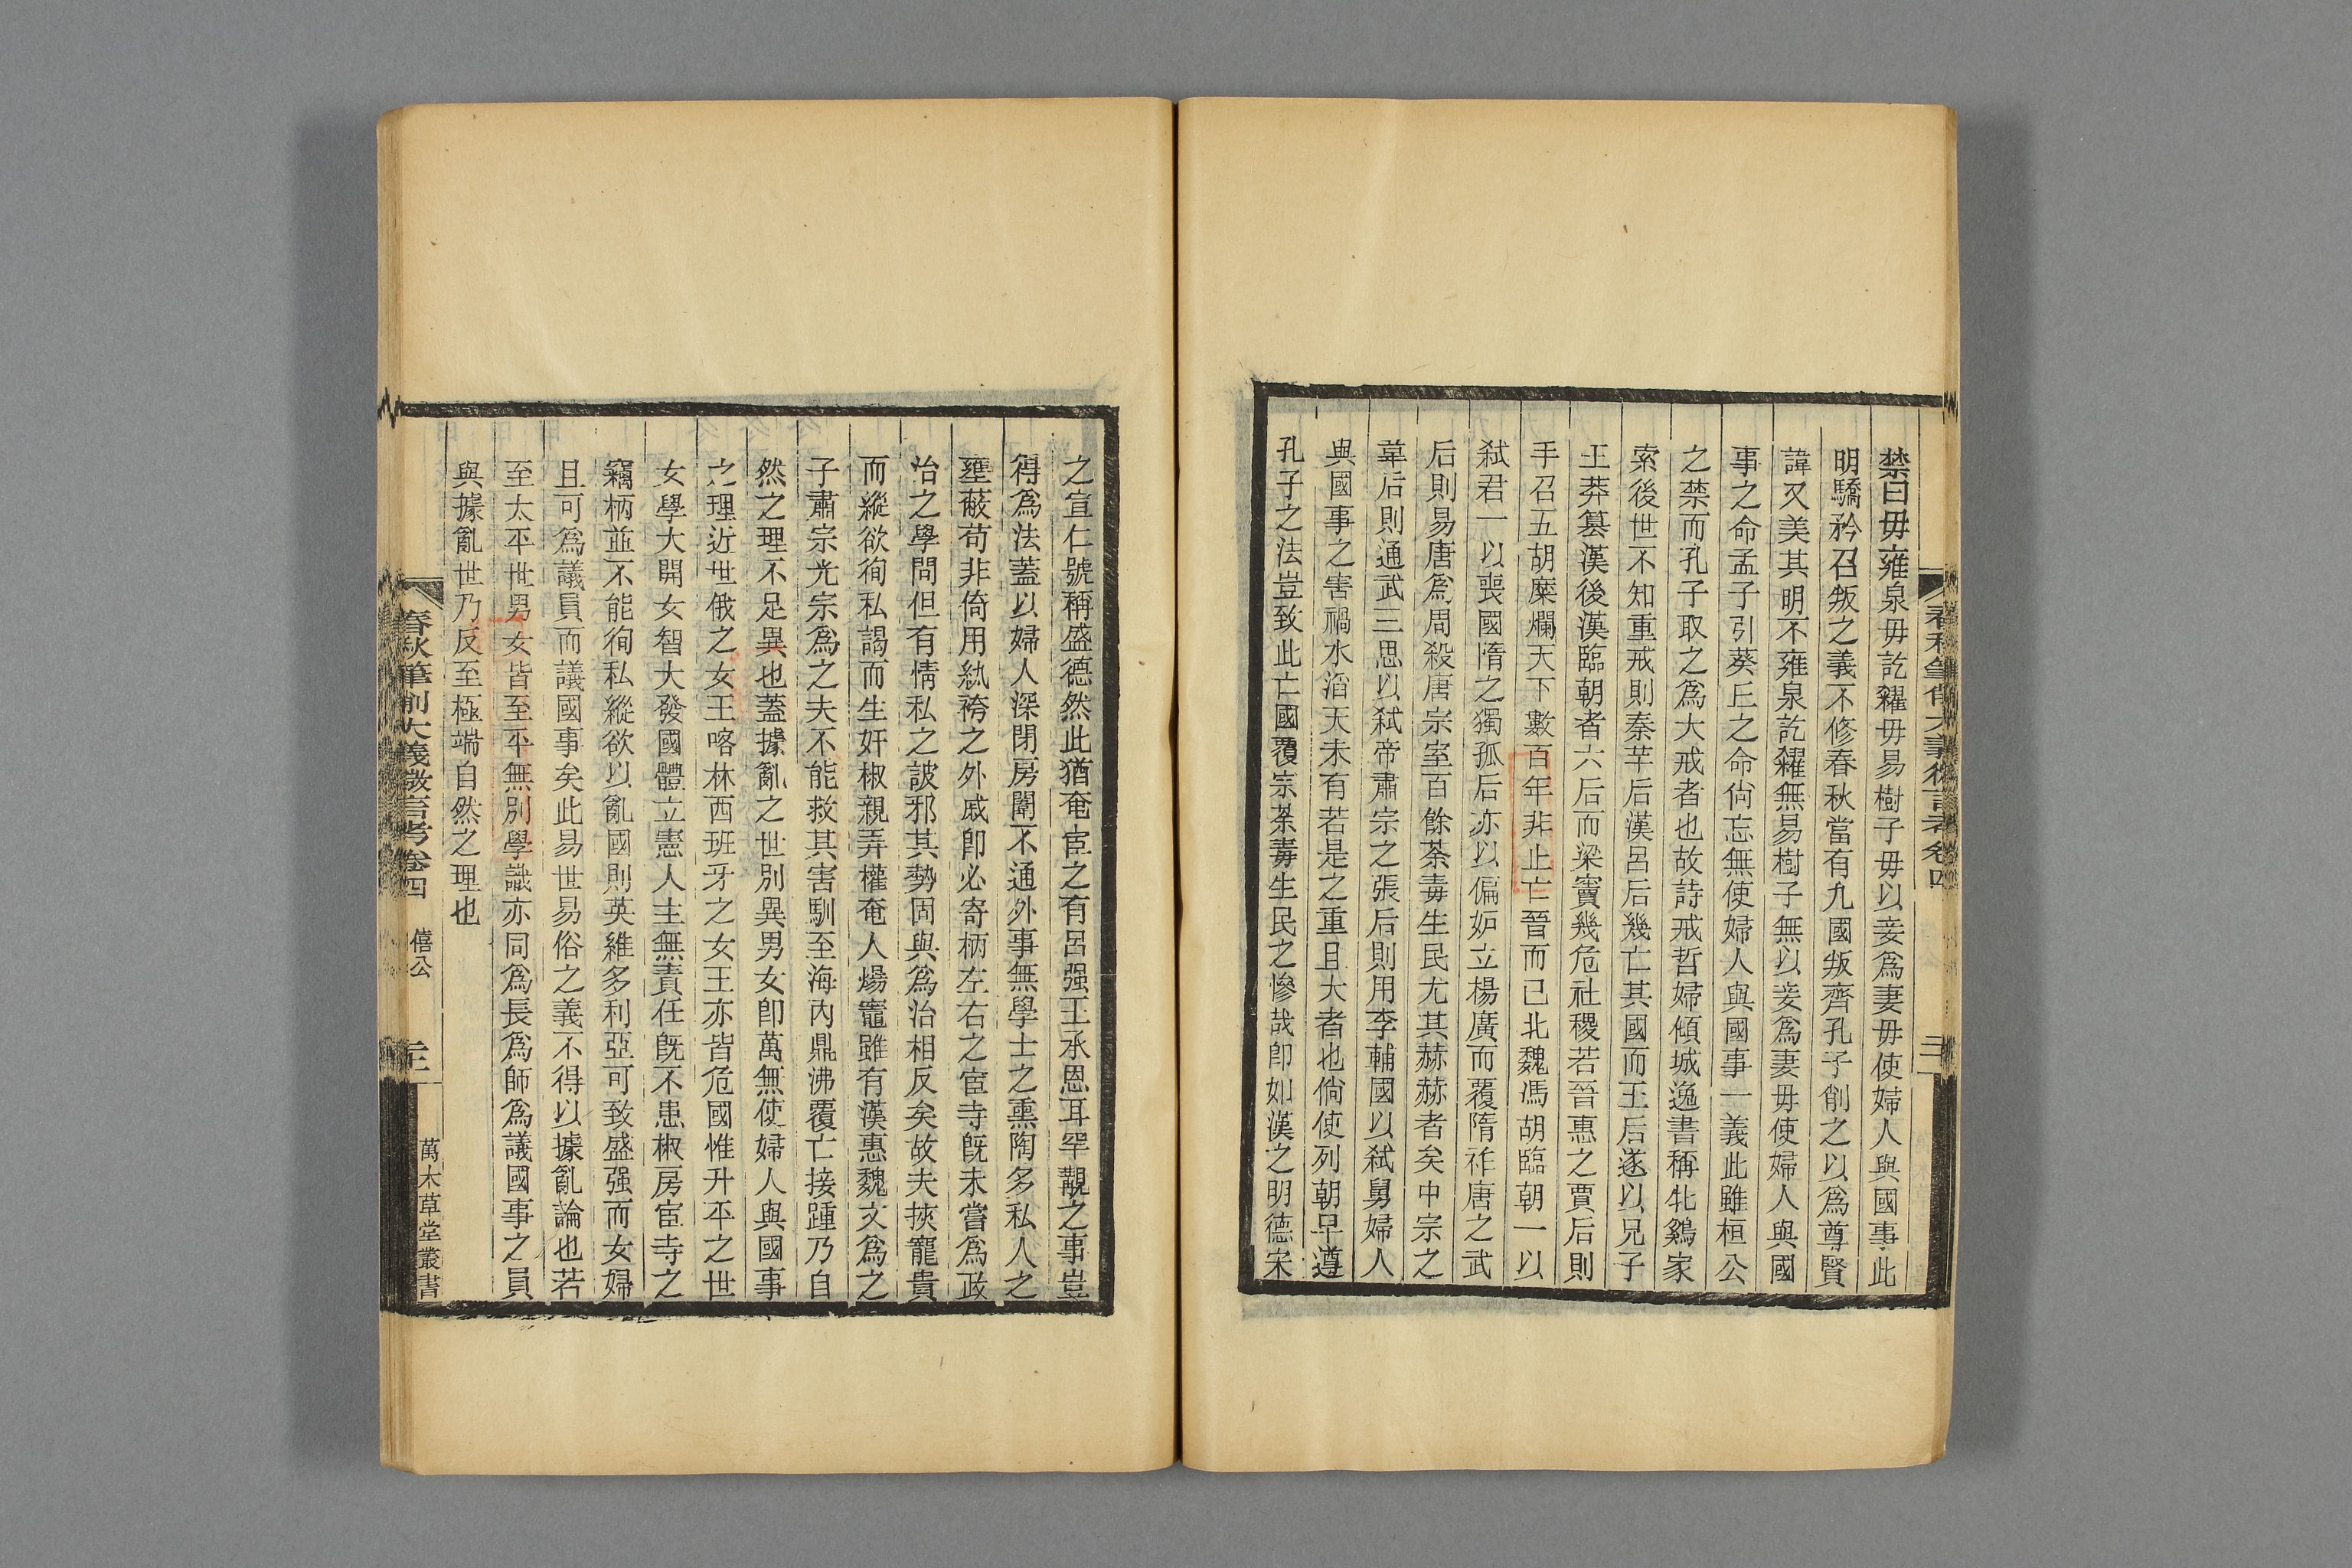 禁曰毋雍泉毋訖糴毋易樹子毋以妾爲妻毋使婦人與國事此
明驕矜召叛之義不修春秋當有九國叛齊孔子削之以爲尊賢
諱又美其明不雍泉訖糴無易樹子無以妾爲妻毋使婦人與國
事之命孟子引葵丘之命尙忘無使婦人與國事一義此雖桓公
之禁而孔子取之爲大戒者也故詩戒哲婦傾城逸書稱牝鷄家
索後世不知重戒則秦芉后漢呂后幾亡其國而王后遂以兄子
王莽篡漢後漢臨朝者六后而梁竇幾危社稷若晉惠之賈后則
手召五胡糜爛天下數百年非止亡晉而已北魏馮胡臨朝一以
弑君一以喪國惰之獨孤后亦以偏妒立楊廣而覆隋祚唐之武
后則易唐爲周殺唐宗室百餘荼毒生民尤其赫赫者矣中宗之
韋后則通武三思以弑帝肅宗之張后則用李輔國以弑舅婦人
與國事之害禍水滔天未有若是之重且大者也倘使列朝早遵
孔子之法豈致此亡國覆宗荼毒生民之慘哉卽如漢之明德宋
春秋筆削大義微言考卷四
之宣仁號稱盛德然此猶奄宦之有呂强王承恩耳罕觀之事豈
得爲法蓋以婦人深閉房闈不通外事無學士之熏陶多私人之
壅蔽苟非倚用紈袴之外戚卽必寄柄左右之宦寺旣未嘗爲政
治之學問但有情私之詖邪其勢固與爲治相反矣故夫挾寵貴
而縱欲徇私謁而生奸椒親弄權奄人煬竈雖有漢惠魏文爲之
子肅宗光宗爲之夫不能救其害馴至海內鼎沸覆亡接踵乃自
然之理不足異也蓋據亂之世別異男女卽萬無使婦人與國事
之理近世俄之女王喀林西班牙之女王亦皆危國惟升平之世
女學大開女智大發國體立憲人主無責任旣不患椒房宦寺之
竊柄並不能徇私縱欲以亂國則英維多利亞可致盛强而女婦
且可爲議員而議國事矣此易世易俗之義不得以據亂論也若
至太平世男女皆至平無別學識亦同爲長爲師爲議國事之員
與據亂世乃反至極端自然之理也
春秋筆削大義微言考卷四 僖公 三 萬木草堂叢書